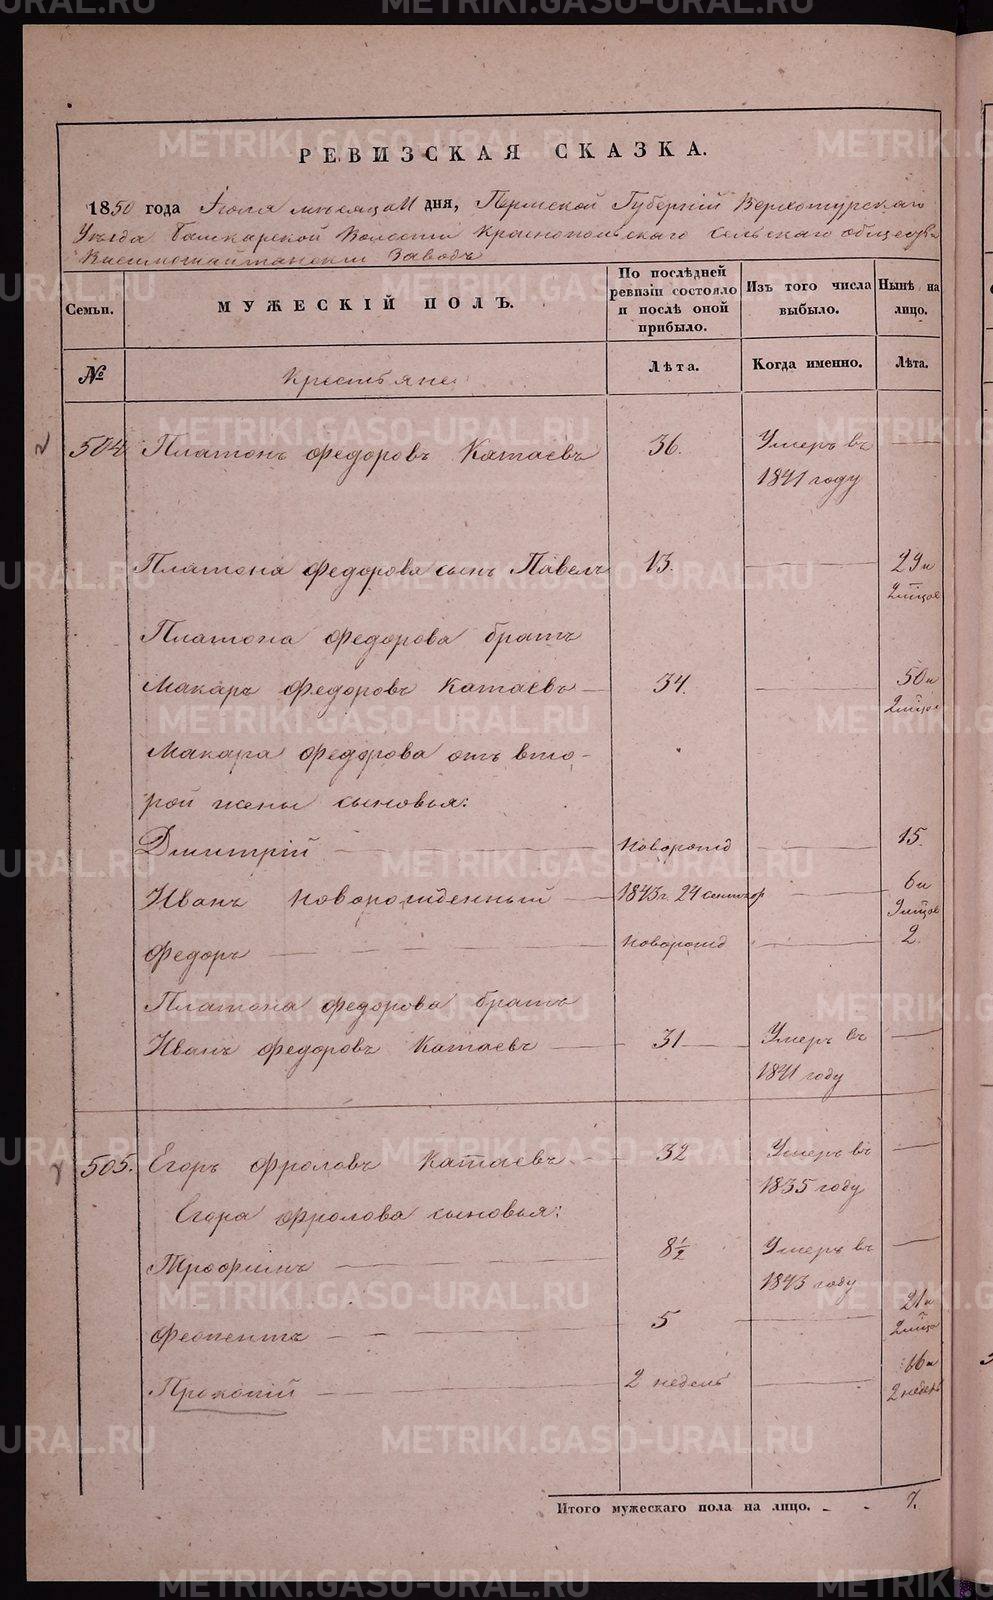 METRIKI.GASO-URAL.RU
РЕВИЗСКАЯ СКАЗКА.
1850 года Июля мѣсяца 11 дня, Пермской Губерній Верхотурскаго
Уѣзда Башкарской Волости Краснопольскаго сельскаго общества
Висимошайтанскій Заводъ
Семьи. МУЖЕСКІЙ ПОЛЪ. По послѣдней ревизіи состояло и послѣ оной прибыло. Изъ того числа выбыло. Нынѣ на лицо.
№ Крестьяне Лѣта. Когда именно. Лѣта.
2 504 Платонъ Федоровъ Катаевъ 36. Умеръ въ
1841 году
Платона Федорова сынъ Павелъ 13. 29 и
2 мѣся
Платона Федорова братъ
Макаръ Федоровъ Катаевъ 34. 50 и
2 мѣся
Макара Федорова отъ вто-
рой жены сыновья:
Дмитрій новорожд 15.
Иванъ новорожденный 1843 г. 24 сентября 6 и
9 мѣся
Федоръ новорожд 2.
Платона Федорова братъ
Иванъ Федоровъ Катаевъ 31 Умеръ въ
1841 году
505. Егоръ Фроловъ Катаевъ 32 Умеръ въ
1835 году
Егора Фролова сыновья:
Трофимъ 8½ Умеръ въ
1843 году
Феопентъ 5 21 и
2 мѣся
Прокопій 2 недель 16 и
2 недель
Итого мужескаго пола на лицо. 7.